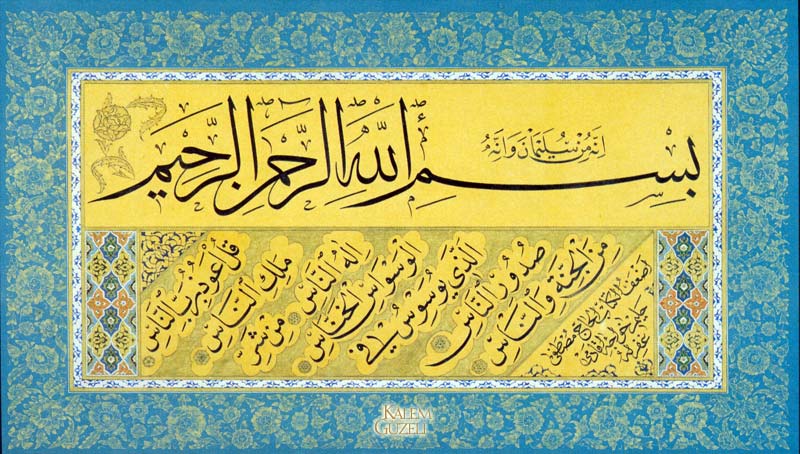 إِنَّهُ مِنْ سُلَيْمَانَ وَإِنَّهُ
بِسْمِ اللهِ الرَّحْمٰنِ الرَّحِيمِ
قُلْ أَعُوذُ بِرَبِّ النَّاسِ
مَلِكِ النَّاسِ
إِلٰهِ النَّاسِ مِنْ شَرِّ
الْوَسْوَاسِ الْخَنَّاسِ
الَّذِي يُوَسْوِسُ فِي
صُدُورِ النَّاسِ
مِنَ الْجِنَّةِ وَالنَّاسِ
اضعف الكتاب الحاج مصطفى
غفر له
KALEM
GÜZELİ